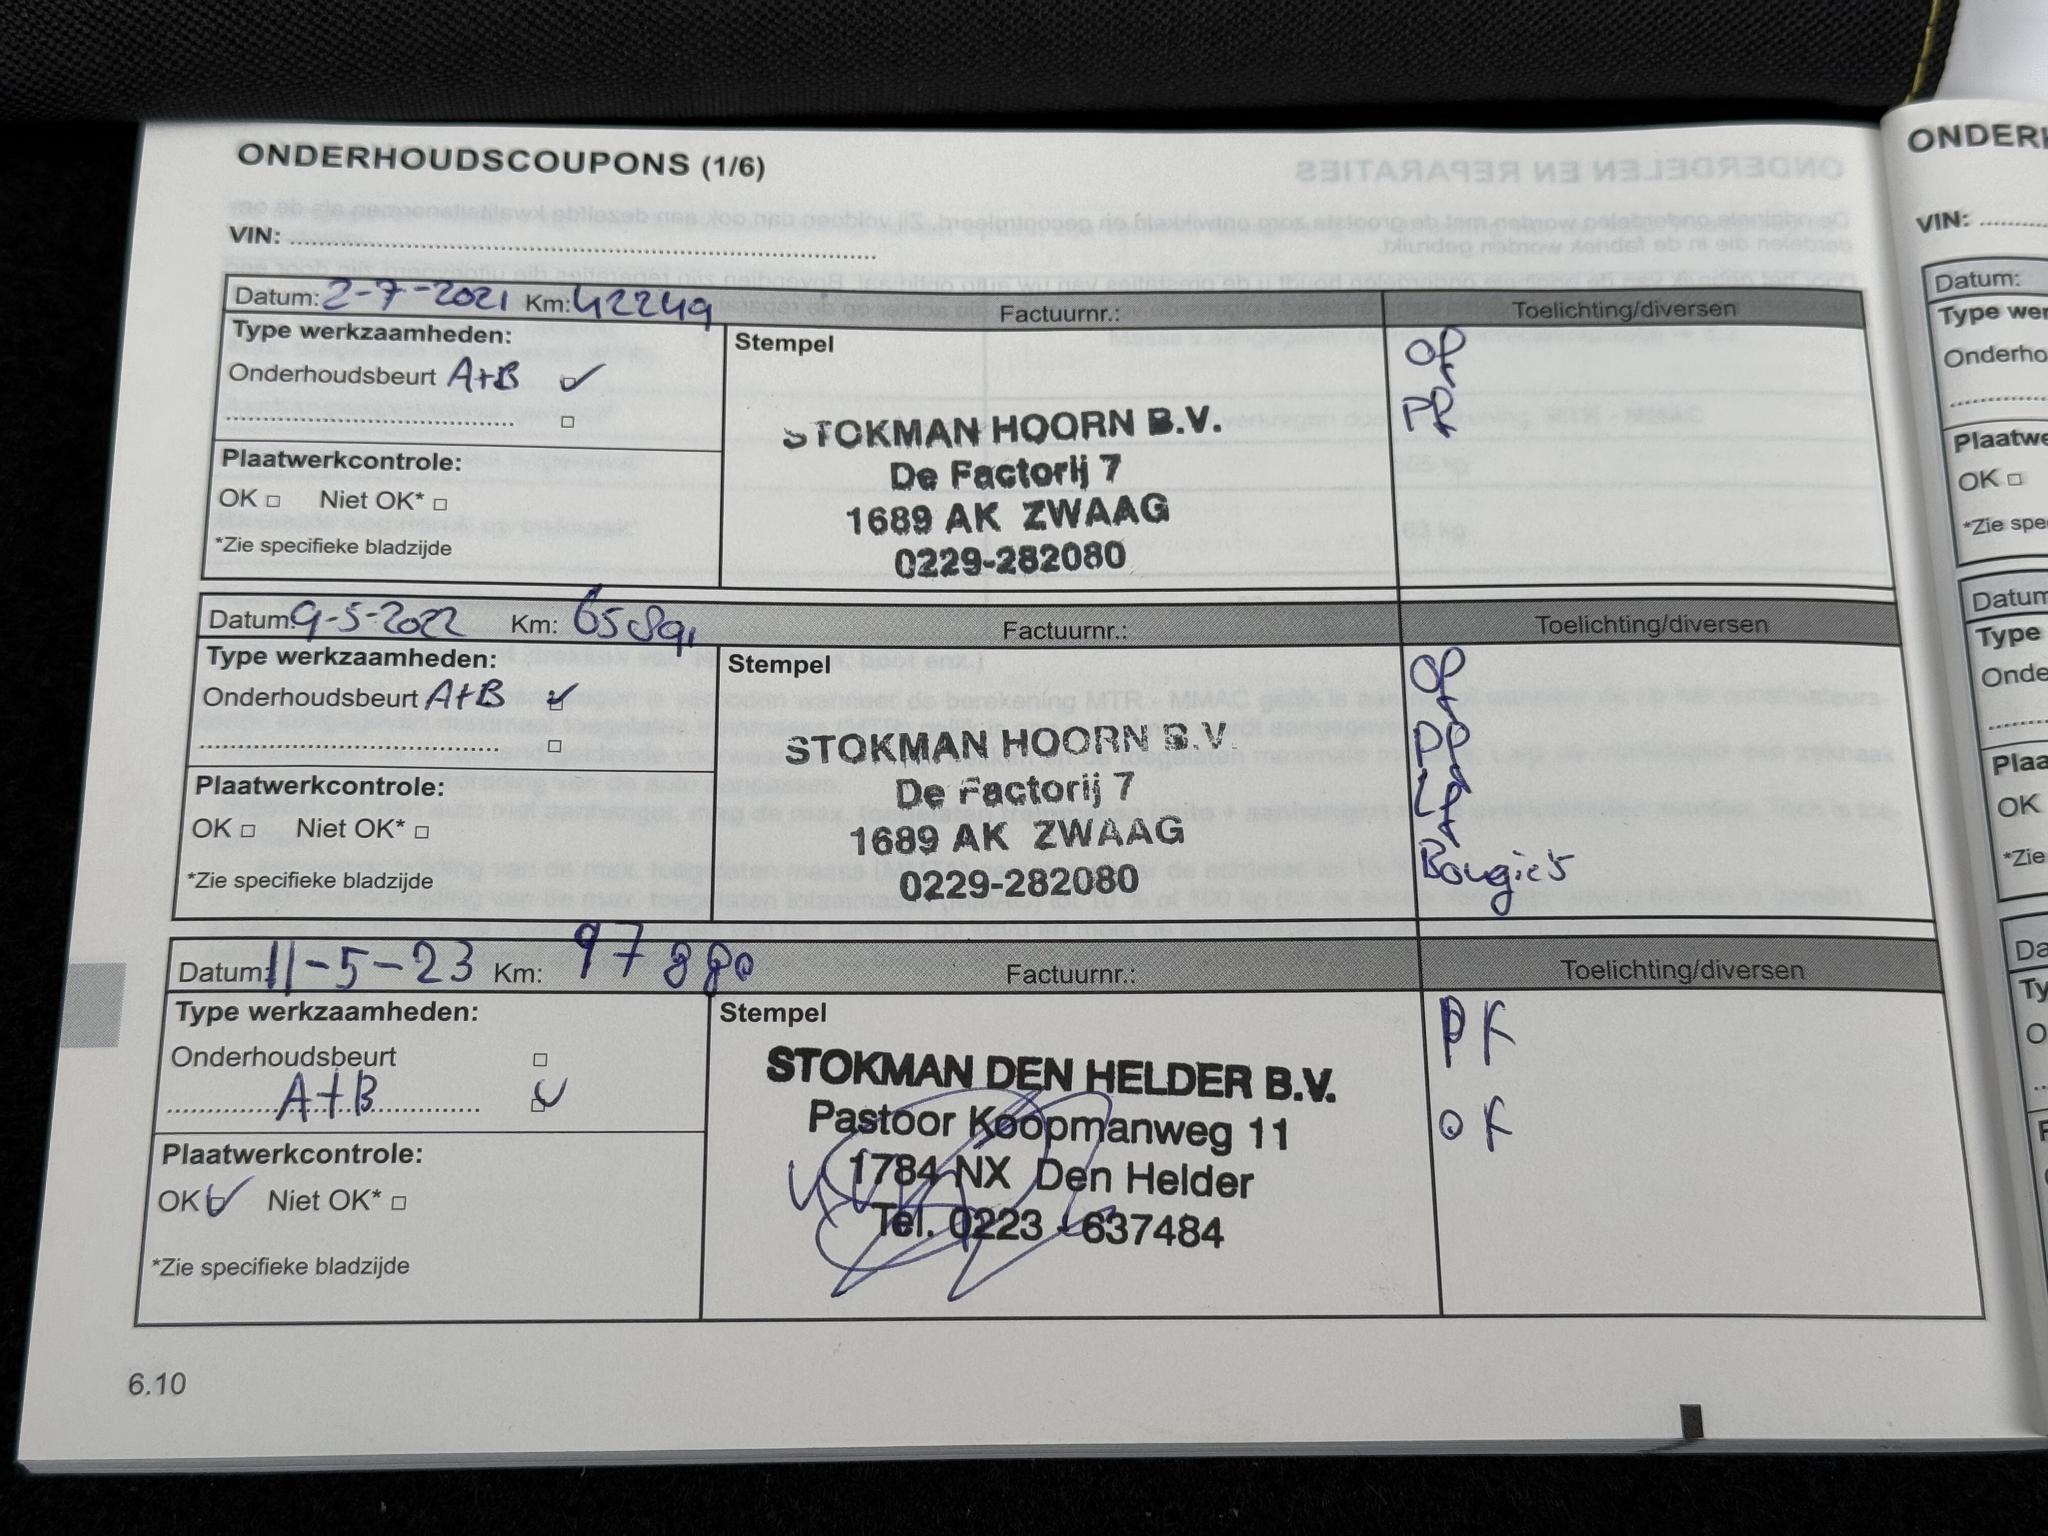 ONDERHOUDSCOUPONS (1/6)
VIN:
Datum: 2-7-2021 Km: 42249 Factuurnr.: Toelichting/diversen
Type werkzaamheden:
Stempel
Onderhoudsbeurt A+B
OF
PF
STOKMAN HOORN B.V.
De Factorij 7
1689 AK ZWAAG
0229-282080
Plaatwerkcontrole:
OK Niet OK*
*Zie specifieke bladzijde
Datum: 9-5-2022 Km: Factuurnr.: Toelichting/diversen
Type werkzaamheden:
Stempel
Onderhoudsbeurt A+B
OF
PF
LF
Bougie's
STOKMAN HOORN B.V.
De Factorij 7
1689 AK ZWAAG
0229-282080
Plaatwerkcontrole:
OK Niet OK*
*Zie specifieke bladzijde
Datum: 11-5-23 Km: 97880 Factuurnr.: Toelichting/diversen
Type werkzaamheden:
Stempel
Onderhoudsbeurt
A+B
PF
OF
STOKMAN DEN HELDER B.V.
Pastoor Koopmanweg 11
1784 NX Den Helder
Tel. 0223 - 637484
Plaatwerkcontrole:
OK Niet OK*
*Zie specifieke bladzijde
6.10
VIN:
Datum:
OK